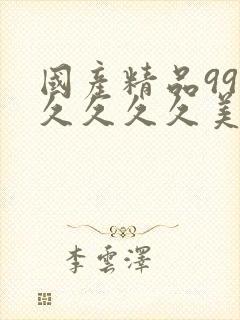 國產精品99
久久久久美
李雲澤